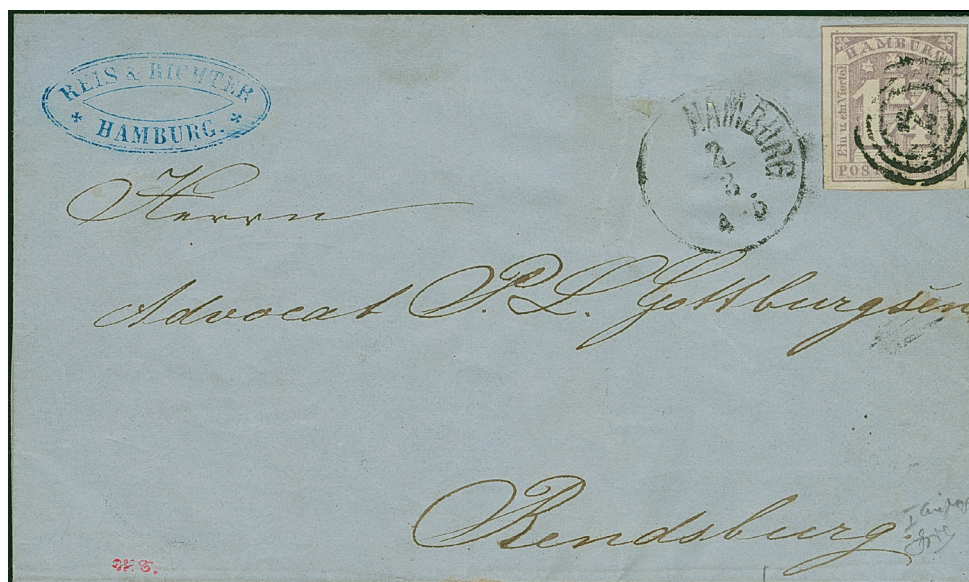 REIS & RICHTER
HAMBURG.
HAMBURG
2
3
4 5
HAMBURG
Ein u. ein Viertel
1 1/4
POST
Herrn
Advocat P. L. Gottburgsen
Rendsburg